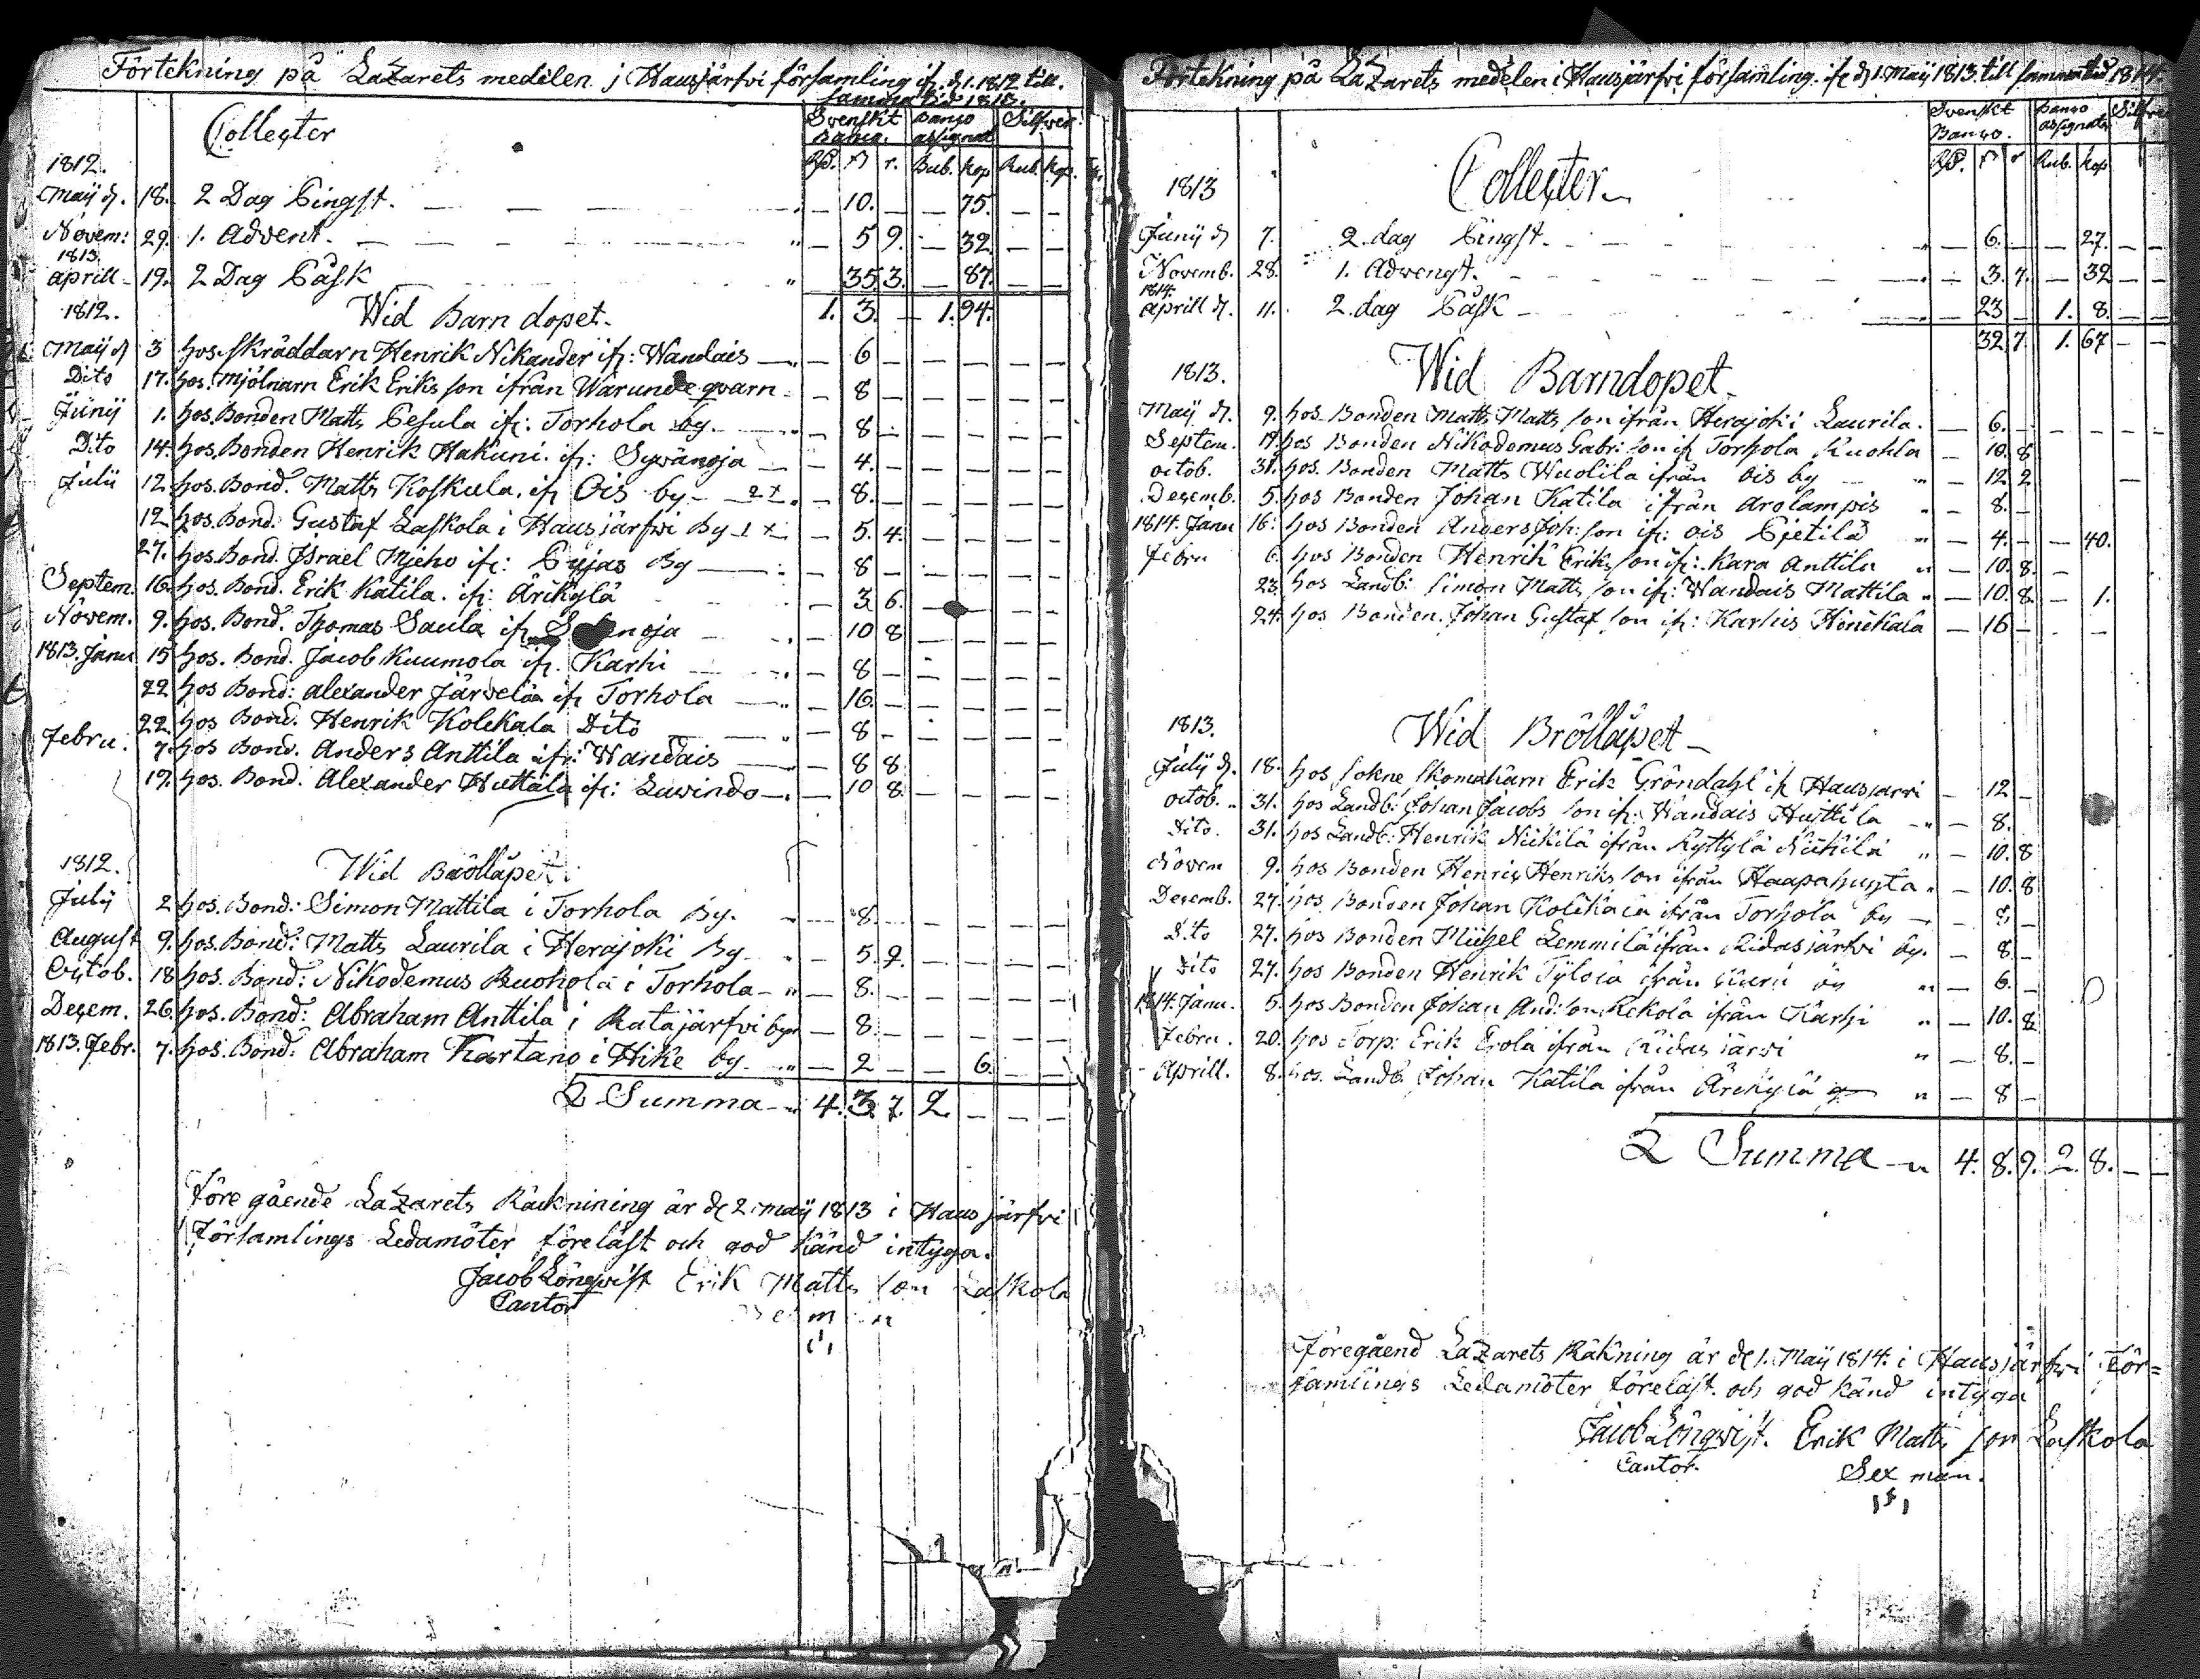 Förtekning på Lazarets medelen j Hausjärfwi församling ifr. d. 1. 1812 till.
samma tid 1813.
Collecter
Svenskt Banco. Banco assignat Silfwer
Rd. ß r. Rub. kop Rub. kop.
1812.
Maij d. 18. 2 Dag Pingst. — 10. — — 75. — —
Novem: 29. 1. Advent. — 5 9. — 32. — —
1813.
aprill 19. 2 Dag Påsk — 35 3. — 87. — —
1. 3. — 1. 94.
1812. Wid Barn dopet.
Maij d 3 hos. skräddarn Henrik Nikander ifr: Wandais — 6 —
Dito 17. hos. mjölnarn Erik Eriks son ifrån Warunde qvarn — 8 —
Junij 1. hos. Bonden Matts Pesula ifr. Torhola by. — 8 —
Dito 14. hos. Bonden Henrik Hakuni. ifr: Sywänoja — 4. —
Julii 12 hos. Bond. Matts Koskula. ifr Ois by — 8. —
12 hos. Bond. Gustaf Laskola i Hausjärfwi By — 5. 4. —
27. hos. Bond. Jsrael Mieho ifr: Pujas By — 8 —
Septem. 16. hos. Bond. Erik Katila. ifr: Ärikylä — 3 6. —
Novem. 9. hos. Bond. Thomas Saula ifr — 10 8
1813. Janu 15 hos. Bond. Jacob Kuumola ifr. Karhi — 8 —
22 hos Bond: Alexander Järvelä ifr Torhola — 16. —
22 hos Bond. Henrik Kolekala Dito — 8 —
Febru. 7. hos Bond. Anders Anttila ifr: Wandais — 8 8
19. hos. Bond. Alexander Huttala ifr: Luwindo — 10 8.
1812. Wid Brölläpet.
July 2 hos. Bond: Simon Mattila i Torhola By. — 8. —
August 9. hos. Bond: Matts Laurila i Herajoki By — 5. 9. —
Octob. 18 hos. Bond: Nikodemus Ruohola i Torhola — 8. —
Decem. 26. hos. Bond: Abraham Anttila i Ratajärfwi by — 8. —
1813. Febr. 7. hos. Bond: Abraham Kartano i Hike by — 2 — — 6. — —
Summa — 4. 3. 7. 2. — — —
Före gående Lazarets Räcknining är d 2. maij 1813 i Hausjärfwi
Församlings Ledamöter föreläst och god känd intyga.
Jacob Lönqvist Erik Matts son Laskola
Cantor
Förtekning på Lazarets medelen i Hausjärfwi församling. ifr d 1. Maij 1813. till samma tid 1814.
Svenskt Banco. Banco assignat Silfwer
Rd. ß r Rub. kop
1813 Collecter
Junij d 7. 2. dag Pingst. — 6. — — 27. — —
Novemb. 28. 1. Adwengt. — 3. 7. — 32 — —
1814.
aprill d. 11. 2. dag Påsk — 23 — 1. 8. — —
32 7. 1. 67 — —
1813. Wid Barndopet
Maij d. 9. hos Bonden Matts Matts son ifrån Herajoki Laurila. — 6. —
Septem. 19. hos Bonden Nikodemus Gabr: son ifr Torhola Ruohla — 10. 8
octob. 31. hos. Bonden Matts Wuolila ifrån Ois by — 12 2
Decemb. 5. hos Bonden Johan Katila ifrån Arolampis — 8. —
1814. Janu 16. hos Bonden Anders Joh: son ifr: Ois Pietilä — 4. — — 40.
Febru 6. hos Bonden Henrik Eriks son ifr: Kara Anttila — 10. 8. —
23. hos Landb: Simon Matts son ifr: Wandais Mattila — 10. 8. — 1.
24. hos Bonden. Johan Gustaf son ifr: Karhis Hinekala — 16 —
1813. Wid Brölläpet
Julij d. 18. hos sokne skomakarn Erik Gröndahl ifr Hausjarvi — 12 —
octob. 31. hos Landb: Johan Jacobs son ifr: Wandais Huttila — 8.
Dito. 31. hos Landb: Henrik Niikilä ifrån Ryttylä Niikilä — 10. 8
Novem 9. hos Bonden Henric Henriks son ifrån Haapahuhta — 10. 8
Decemb. 27. hos Bonden Johan Kolekala ifrån Torhola by — 8. —
Dito 27. hos Bonden Michel Lemmilä ifrån Ridasjärfvi by. — 8. —
Dito 27. hos Bonden Henrik Tylölä ifrån — 6. —
1814. Janu. 5. hos Bonden Johan And: son Rekola ifrån Karhi — 10. 8
Febru. 20. hos Torp: Erik Erola ifrån Ridas järvi — 8. —
Aprill. 8. hos. Landb. Johan Katila ifrån Ärikylä — 8 —
Summa — 4. 8. 9. 2. 8. — —
Föregåend Lazarets Räkning är d 1. Maij 1814. i Hausjärfwi För=
samlings Ledamöter föreläst och god känd intyga
Jacob Lönqvist. Erik Matts son Laskola
Cantor. Sex man.